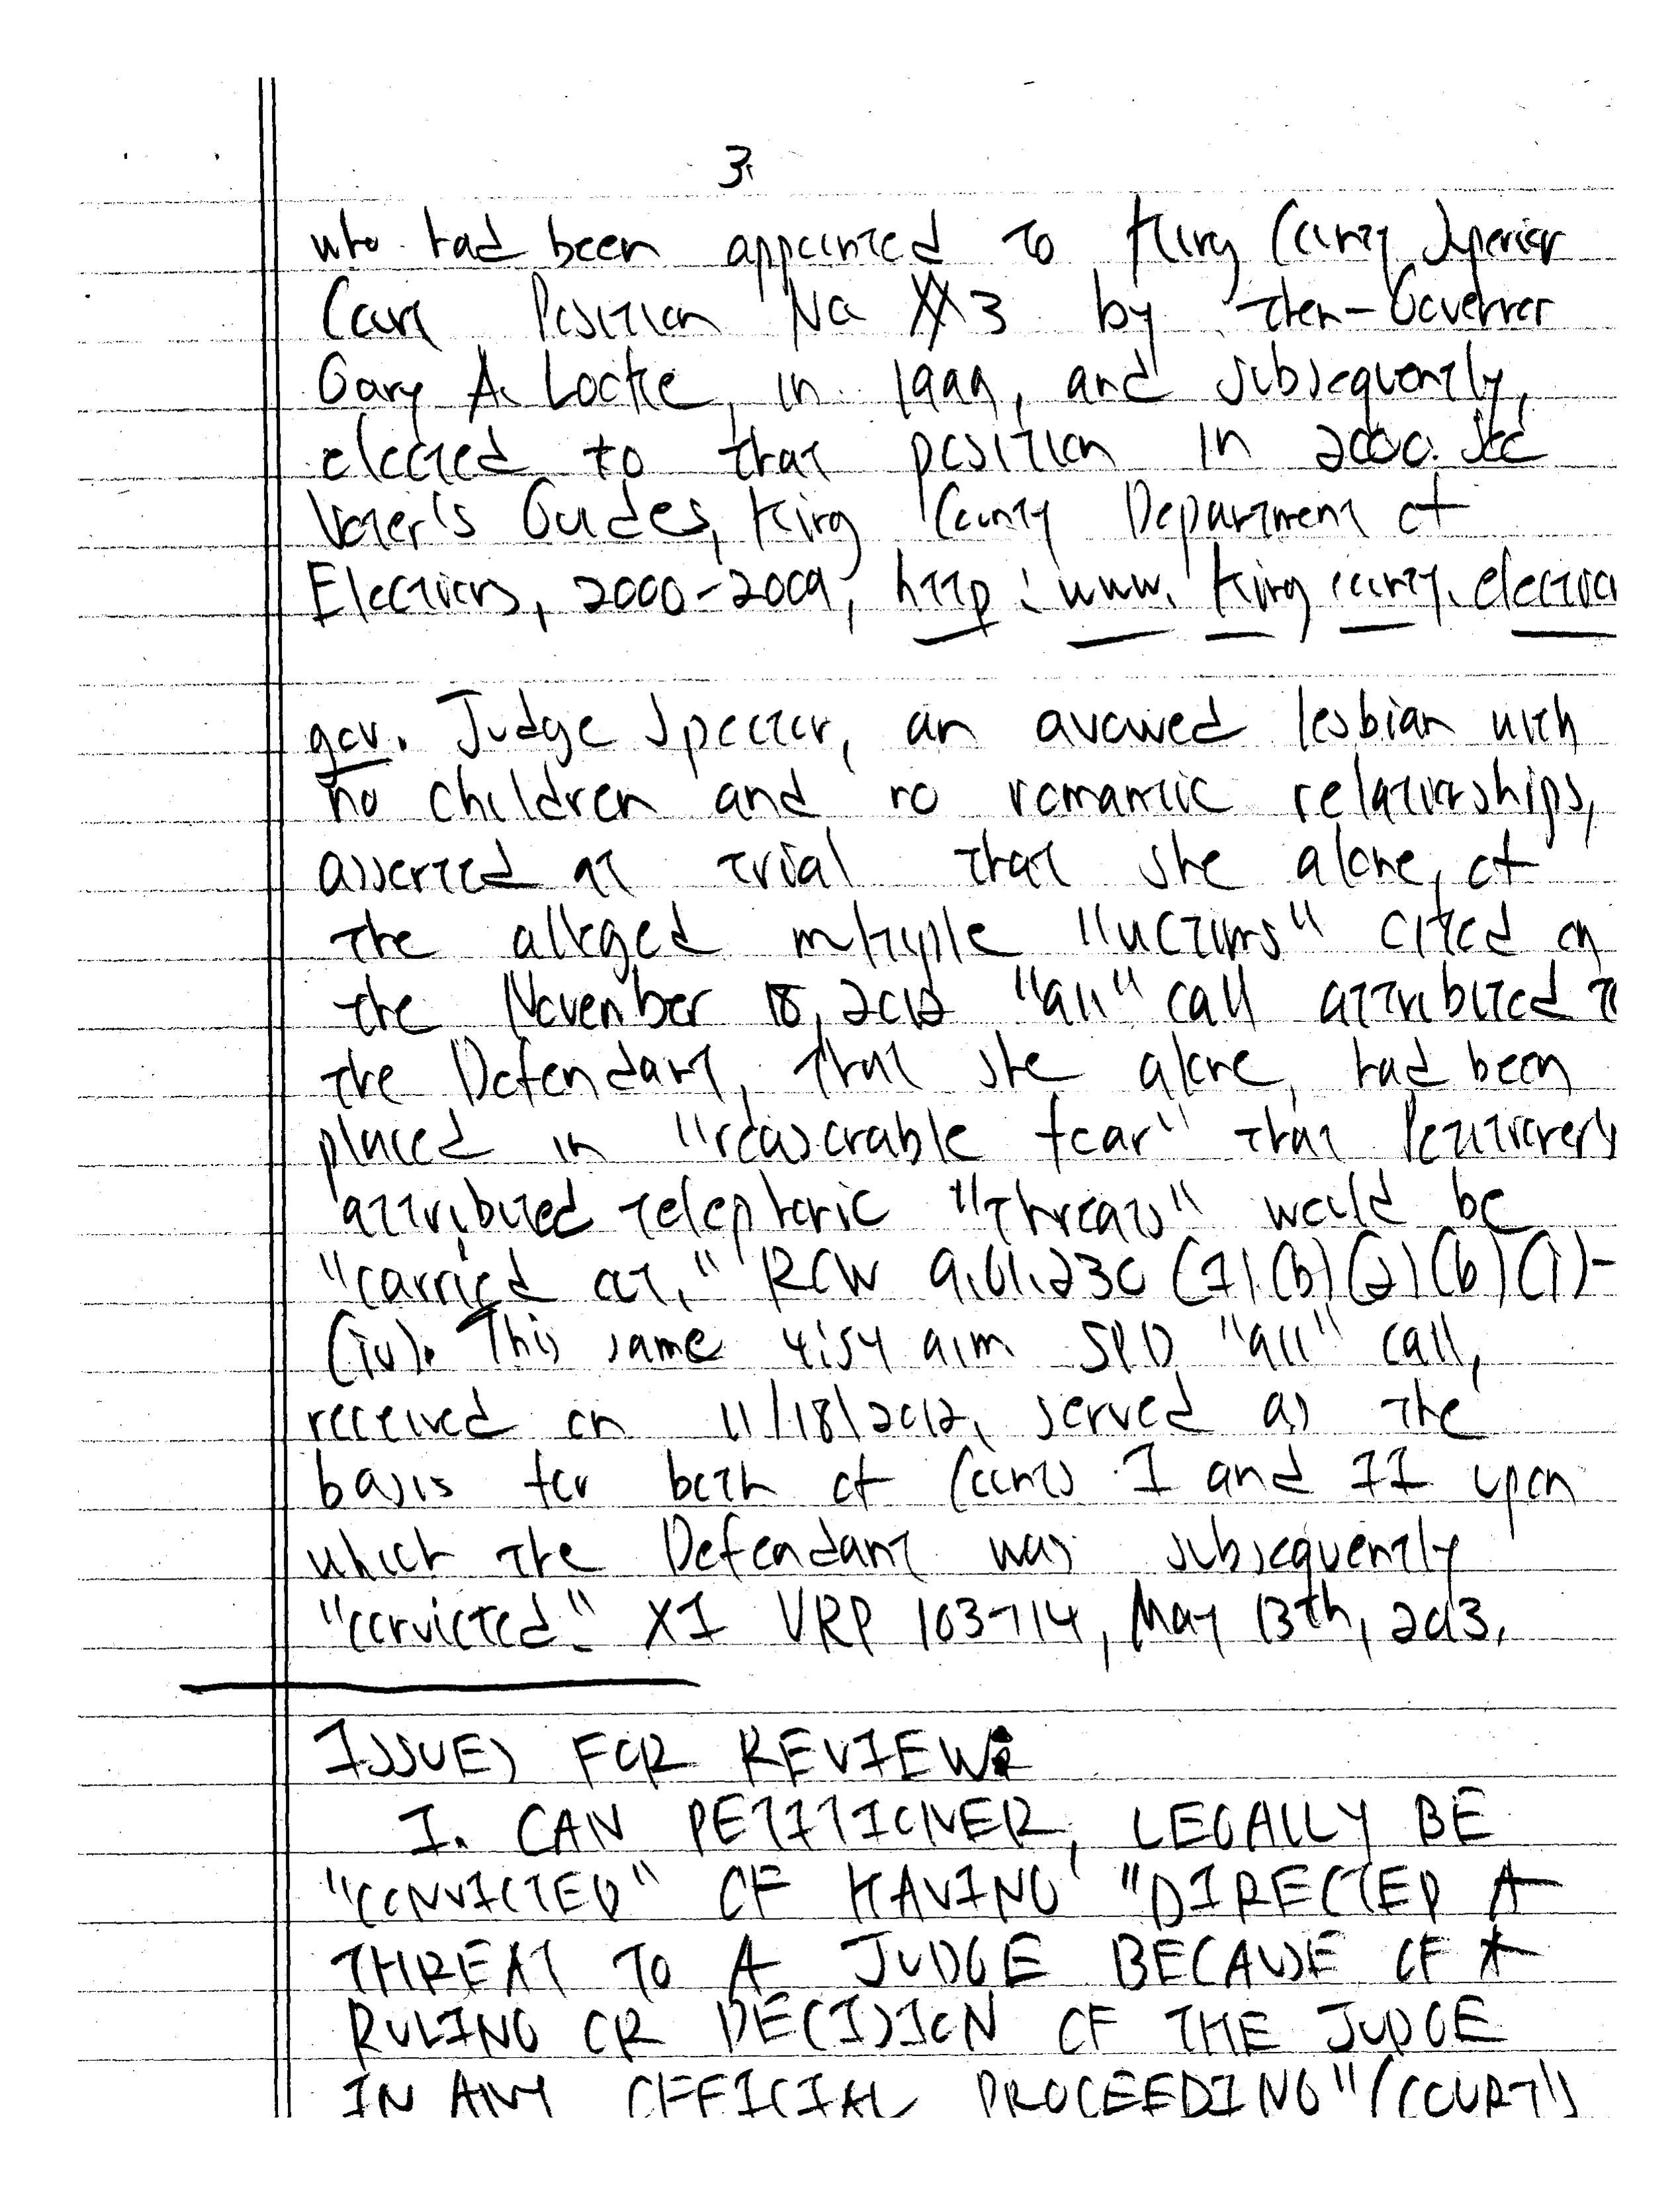 3.
who had been appointed to King County Superior
Court Position No 3 by then-Governor
Gary A. Locke, in 1999, and subsequently,
elected to that position in 2000. See
Voter's Guides, King County Department of
Elections, 2000-2009, http: www. King county. election
gov. Judge Spector, an avowed lesbian with
no children and no romantic relationships,
asserted at trial that she alone, of
the alleged multiple "victims" cited on
the November 18, 2012 "911" call attributed to
the Defendant, that she alone, had been
placed in "reasonable fear" that Petitioner's
attributed telephonic "threats" would be
"carried out," RCW 9.61.230 (1)(b)(2)(b)(i)-
(iv). This same 4:54 a.m SPD "911" call,
received on 11/18/2012, served as the
basis for both of Counts I and II upon
which the Defendant was subsequently
"convicted." XI VRP 103-114, May 13th, 2013.
ISSUES FOR REVIEW:
I. CAN PETITIONER, LEGALLY BE
"CONVICTED" OF HAVING "DIRECTED A
THREAT TO A JUDGE BECAUSE OF A
RULING OR DECISION OF THE JUDGE
IN ANY OFFICIAL PROCEEDING"/(COURT')